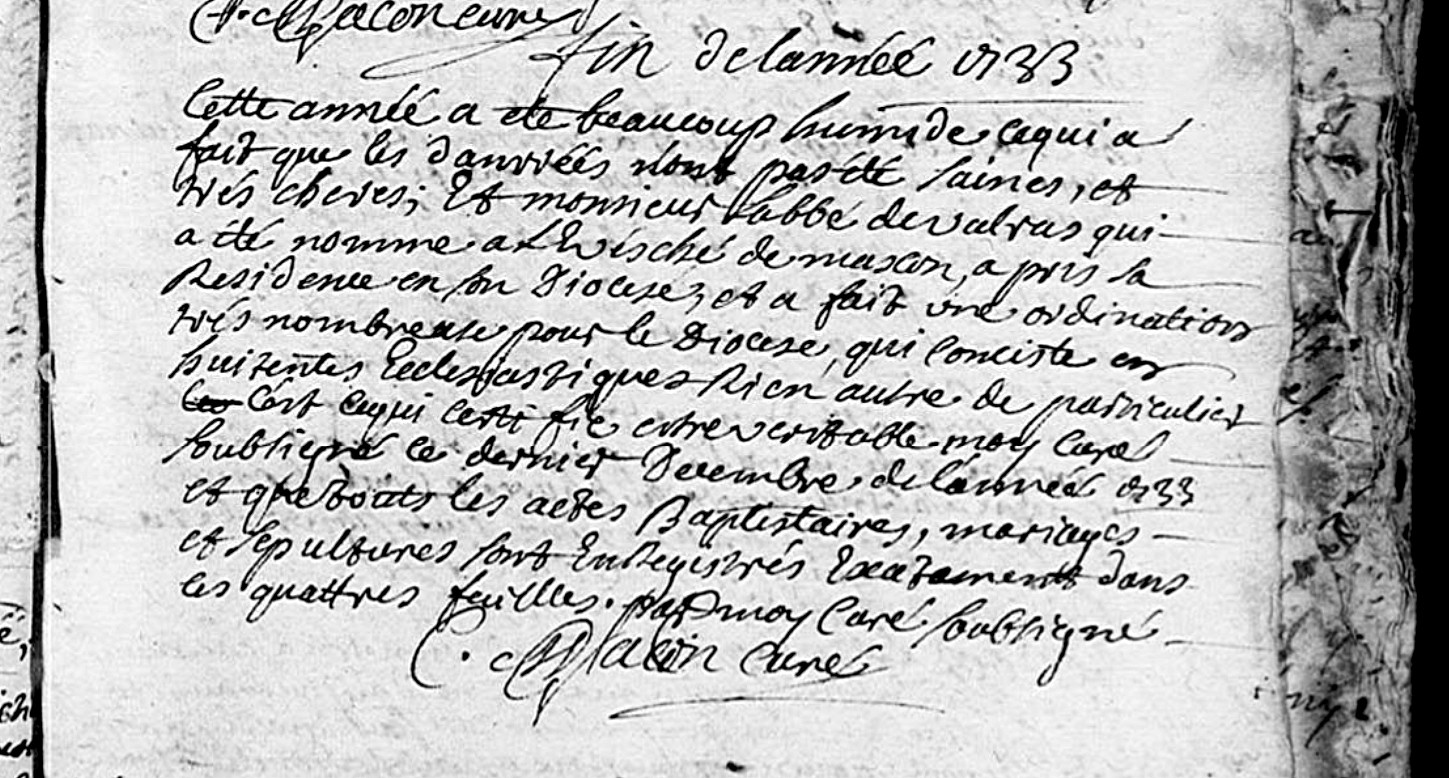 curé
fin de lannée 1733
Cette année a ete beaucoup humide cequi a
fait que les danrréés nont pas été saines, et
trés cheres; Et monsieur l'abbé devalras qui
a été nomme a L'Evésché de mascon, a pris sa
Residence en son Diocese, et a fait une ordination
trés nombreuse pour le Diocese, qui conciste en
huitentes Ecclesiastiques Rien autre de particulier
Cést cequi certifie estre veritable moy Curé
soubsigné ce dernier Decembre de lánnéé 1733
et que touts les actes Baptistaires, mariages
et sepultures sont Enregistrés Exactament dans
les quattres feuilles. par moy Curé soubsigné
C. curé